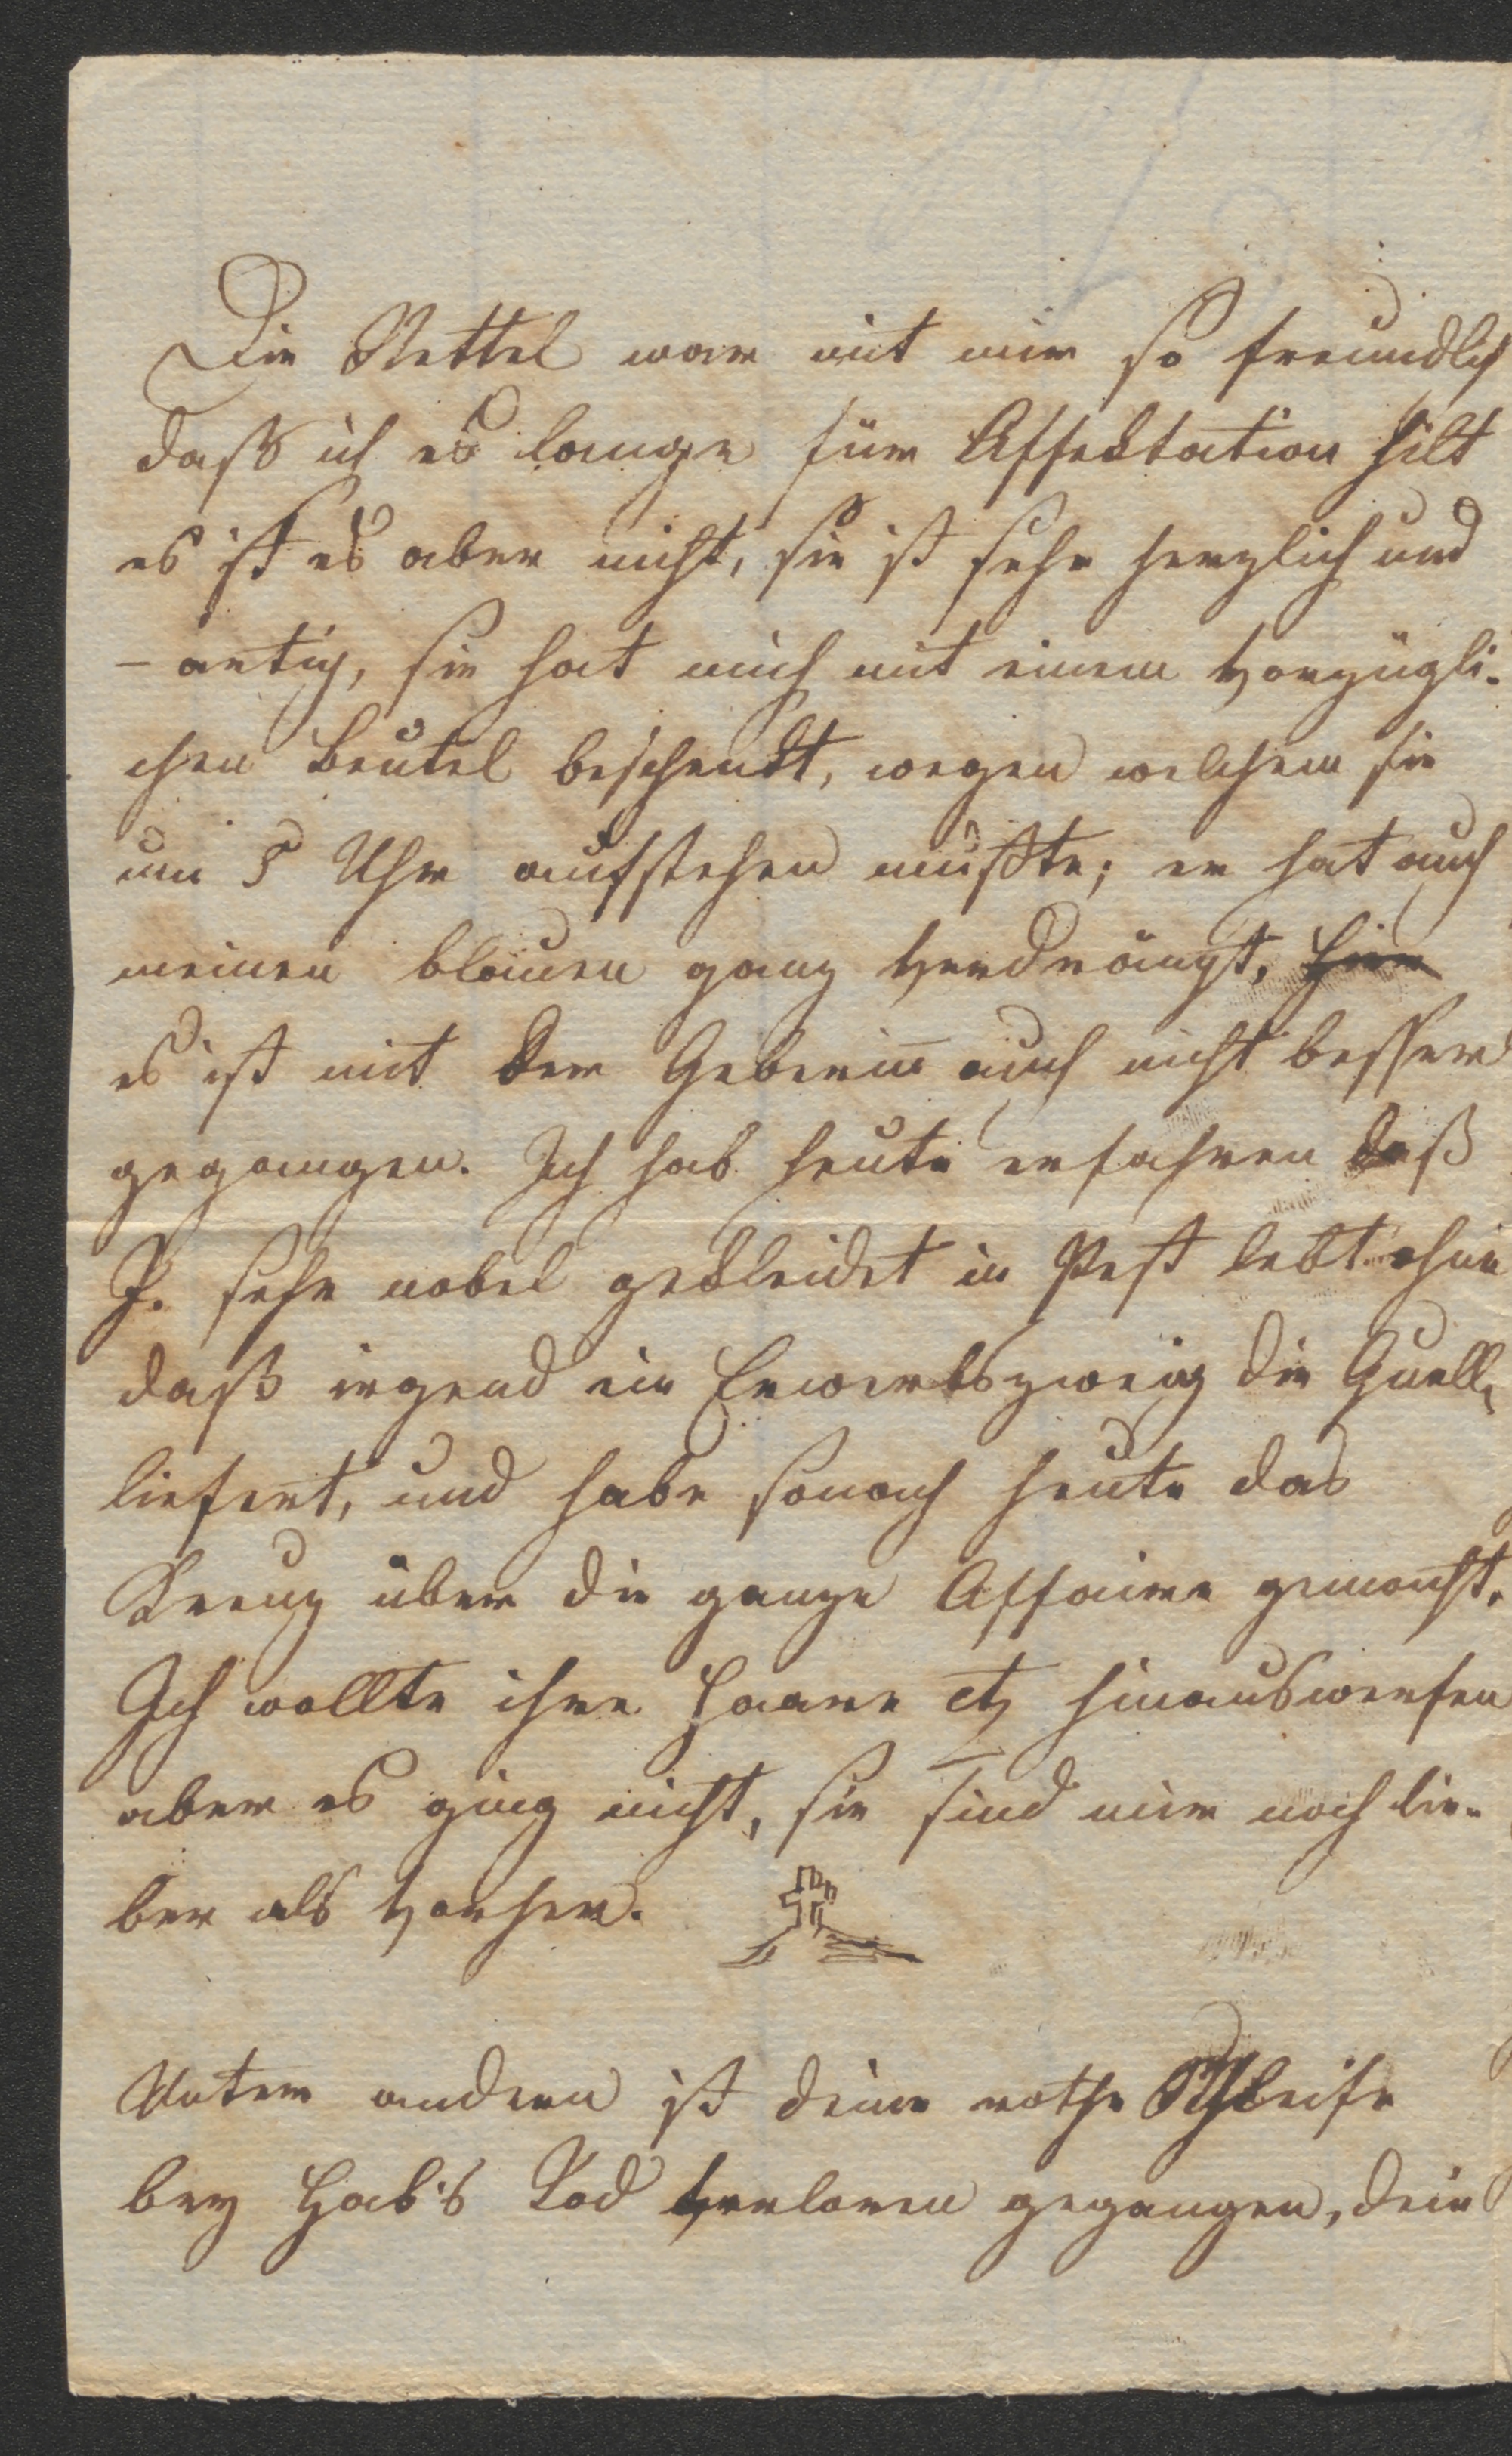 Die Nettel war mit mir so freundlich
daß ich es lange für Affektation hilt
es ist es aber nicht, sie ist sehr herzlich und
– artig, sie hat mich mit einem vorzügli-
chen Beutel beschenkt, wegen welchem sie
um 5 Uhr aufstehen mußte; er hat auch
meinen blauen ganz verdrängt,
es ist mit der Geberin̄ auch nicht besser
gegangen. Ich hab heute erfahren daß
P. sehr nobel gekleidet in Pest lebt ohne
daß irgend ein Erwerbszweig die Quelle
liefert, und habe sonach heute das
Kreuz über die ganze Affaire gemacht.
Ich wollte ihre Haare etz hinauswerfen
aber es ging nicht, sie sind mir noch lie-
ber als vorher.
Unter andern ist deine rothe Schleife
bey Hab's Tod verloren gegangen, dein